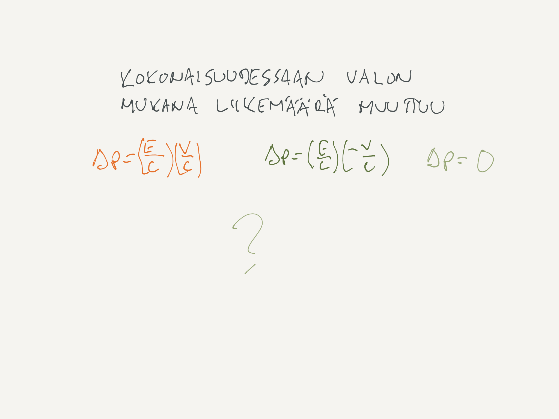 KOKONAISUUDESSAAN VALON
MUKANA LIIKEMÄÄRÄ MUUTTUU
Δp=(E/C)(V/C) Δp=(E/C)(-V/C) Δp=0
?